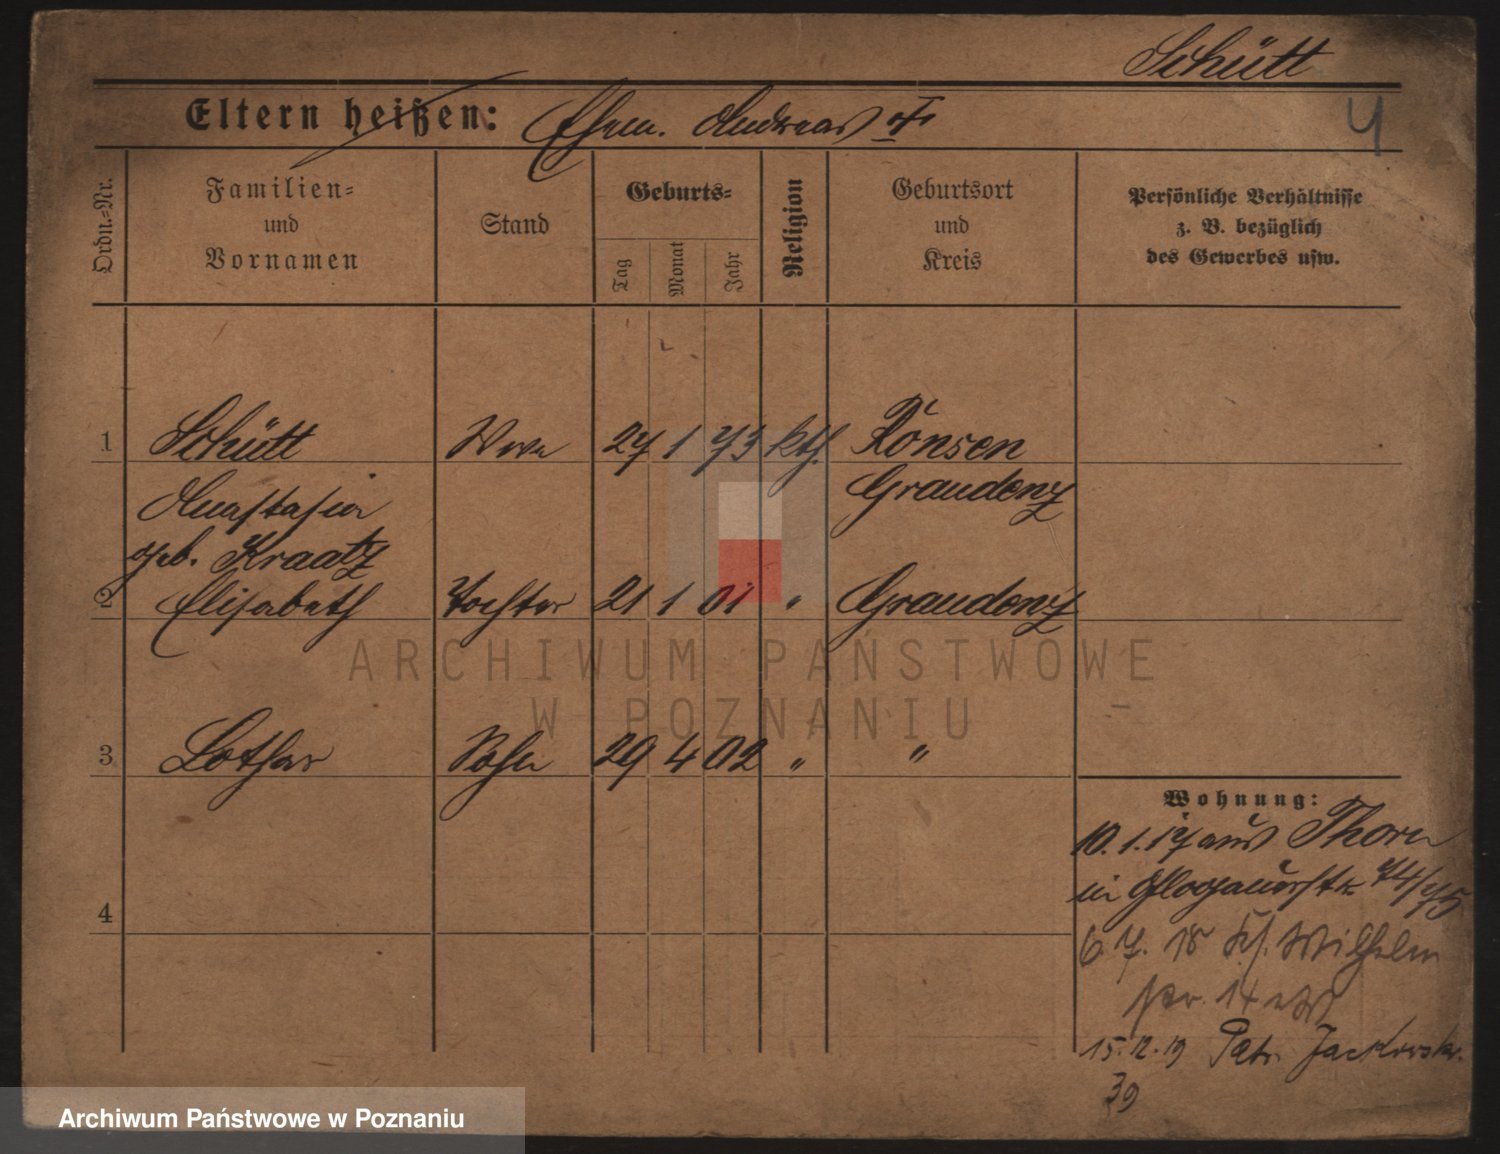 Schütt
Eltern heißen: Ehem. Andreas
4
Ordn.-Nr.
Familien-
und
Vornamen
Stand
Geburts-
Tag
Monat
Jahr
Religion
Geburtsort
und
Kreis
Persönliche Verhältnisse
z. B. bezüglich
des Gewerbes usw.
1 Schütt Wwe 27 1 73 kth. Rönsen
Anastasia Graudenz
geb. Kraatz
2 Elisabeth Tochter 21 1 01 " Graudenz
3 Lothar Sohn 29 4 02 " "
4
Wohnung:
10.1.17 aus Thorn
in Glogauerstr 74/75
6. 7. 18 Wilhelm
str. 14
15.12.19 Patr. Jackowsk.
39
ARCHIWUM PAŃSTWOWE
W POZNANIU
Archiwum Państwowe w Poznaniu